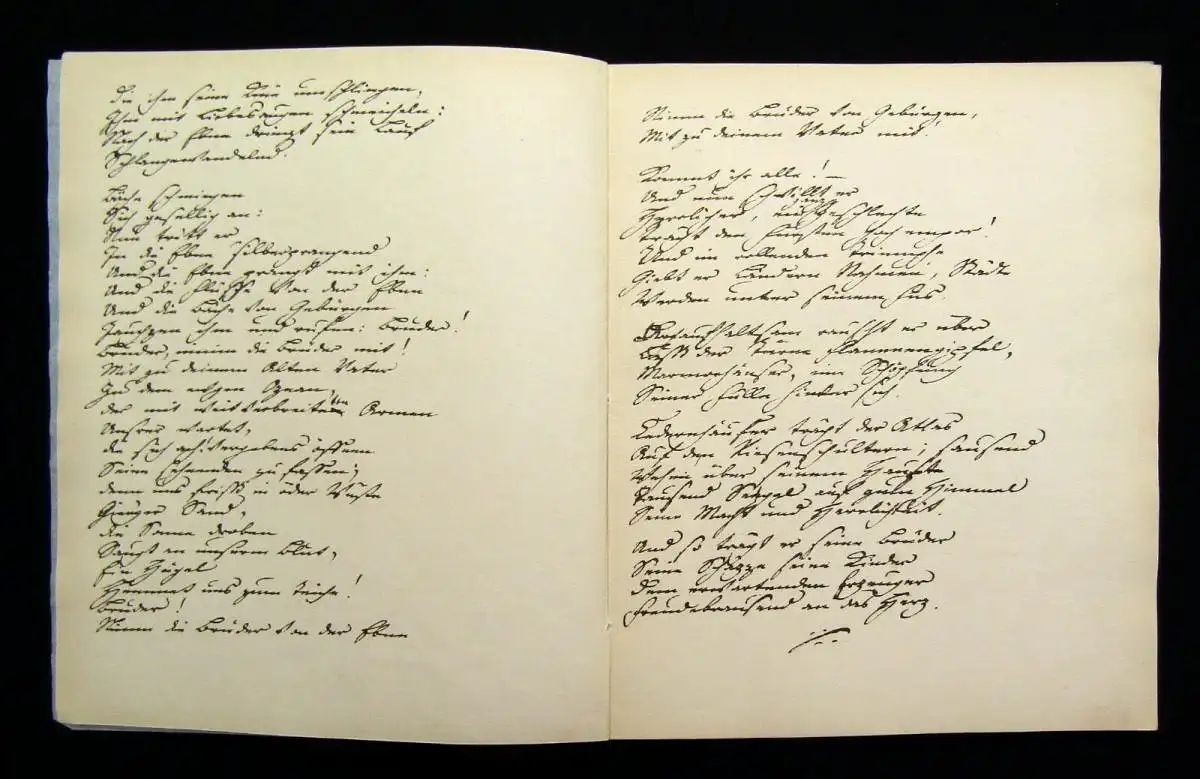 Die ihm seine Knie umschlingen,
Ihm mit Liebesaugen schmeicheln:
Nach der Ebne dringt sein Lauf
Schlangewandelnd.
Bäche schmiegen
Sich gesellig an:
Nun tritt er
In die Ebne silberprangend
Und die Ebne prangt mit ihm:
Und die Flüsse von der Ebne
Und die Bäche von Gebürgen
Jauchzen ihm und rufen: Bruder!
Bruder, nimm die Brüder mit!
Mit zu deinem Alten Vater
Zu dem ewgen Ozean,
der mit weitverbreiteten Armen
Unsrer wartet,
die sich ach! vergebens öffnen
Seine Sehnenden zu fassen;
denn uns frisst in öder Wüste
Gieriger Sand,
die Sonne droben
Saugt an unserm Blut,
Ein Hügel
Hemmet uns zum Teiche!
Bruder!
Nimm die Brüder von der Ebne
Nimm die Brüder von Gebürgen,
Mit zu deinem Vater mit!
Kommt ihr alle! —
Und nun schwillt er
Herrlicher, ein ganz Geschlechte
Trägt den Fürsten hoch empor!
Und im rollenden Triumphe
Giebt er Ländern Nahmen, Städte
Werden unter seinem Fus.
Unaufhaltsam rauscht er über
Lässt der Türne Flammengipfel,
Marmorhäuser, eine Schöpfung
Seiner Fülle hinter sich.
Cedernhäusser trägt der Atlas
Auf den Riesenschultern; sausend
Wehen über seinem Haupte
Tausend Seegel auf zum Himmel
Seine Macht und Herrlichkeit.
Und so trägt er seine Brüder
Seine Schäzze seine Kinder
Dem erwartenden Erzeuger
Freudebrausend an das Herz.